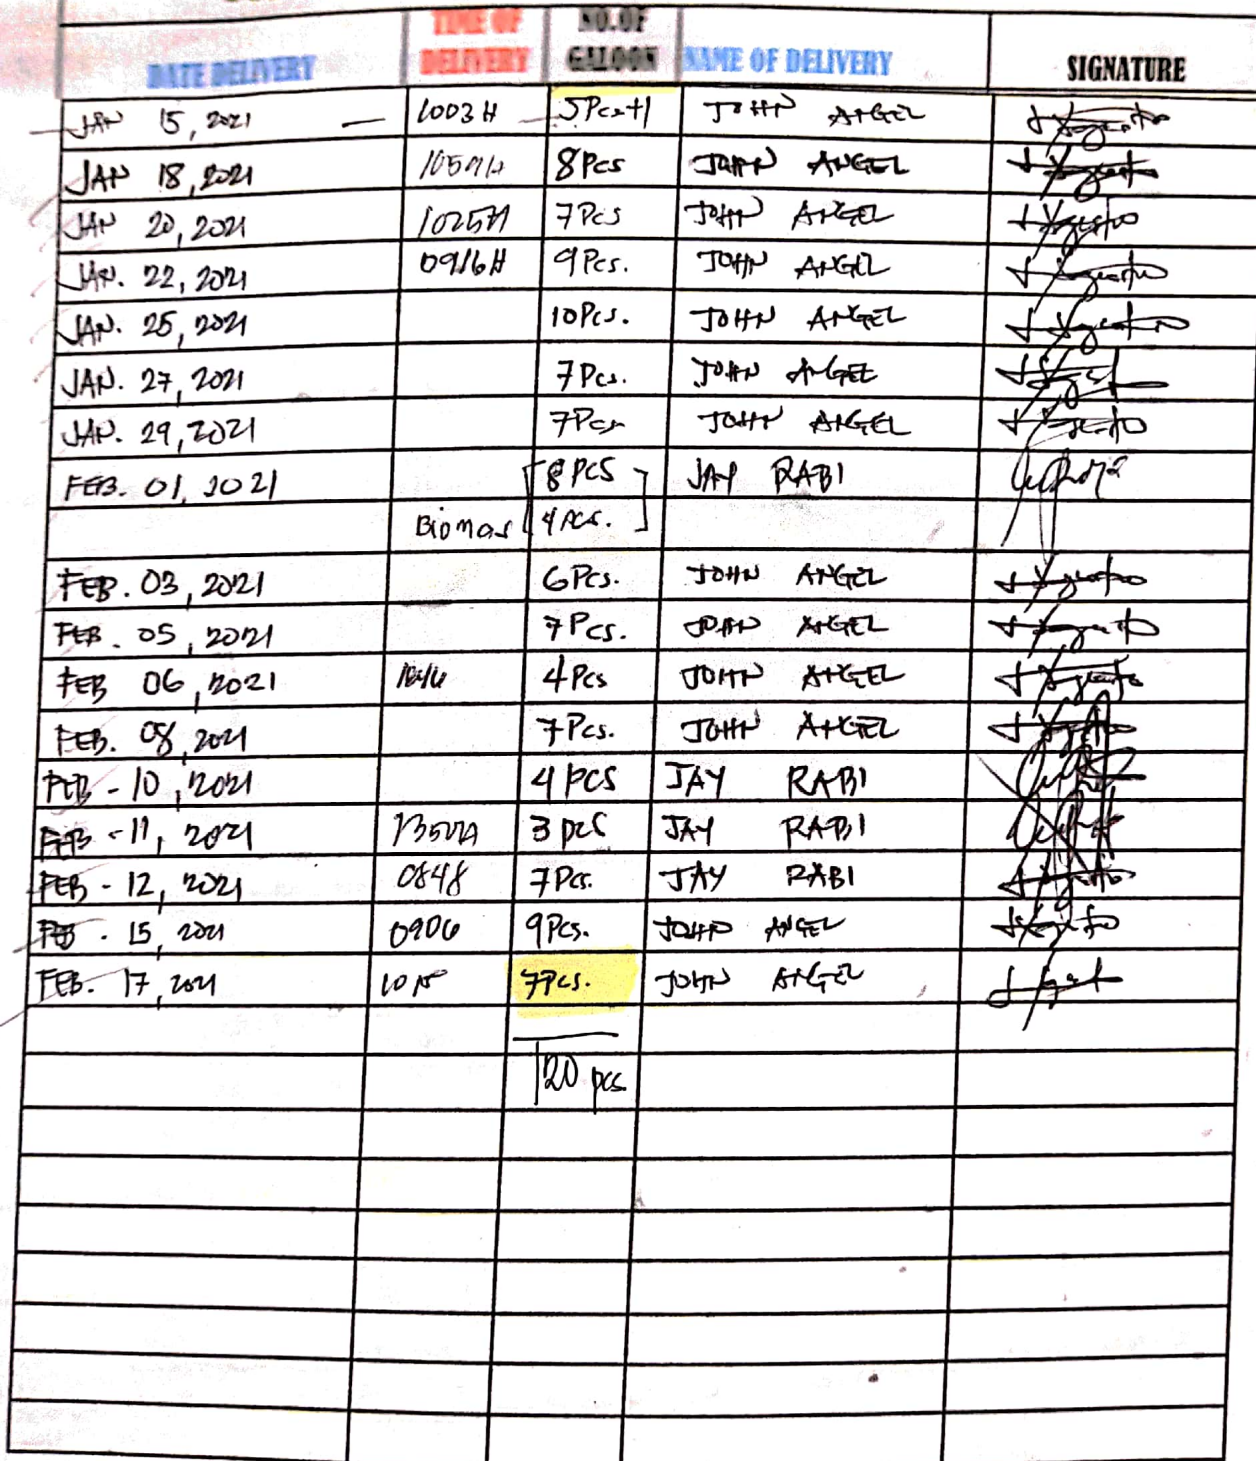 DATE DELIVERY TIME OF DELIVERY NO. OF GALOON NAME OF DELIVERY SIGNATURE
JAN 15, 2021 — 1003H 5Pcs+1 JOHN ANGEL
JAN 18, 2021 8Pcs JOHN ANGEL
JAN 20, 2021 1025H 7Pcs JOHN ANGEL
JAN. 22, 2021 0916H 9Pcs. JOHN ANGEL
JAN. 25, 2021 10Pcs. JOHN ANGEL
JAN. 27, 2021 7Pcs. JOHN ANGEL
JAN. 29, 2021 7Pcs JOHN ANGEL
FEB. 01, 2021 8 PCS JAY RABI
Biomas 4 Pcs.
FEB. 03, 2021 6Pcs. JOHN ANGEL
FEB. 05, 2021 7Pcs. JOHN ANGEL
FEB 06, 2021 4Pcs JOHN ANGEL
FEB. 08, 2021 7Pcs. JOHN ANGEL
FEB - 10, 2021 4 PCS JAY RABI
FEB - 11, 2021 3 pcs JAY RABI
FEB - 12, 2021 0848 7Pcs. JAY RABI
FEB - 15, 2021 0906 9Pcs. JOHN ANGEL
FEB. 17, 2021 7Pcs. JOHN ANGEL
120 pcs